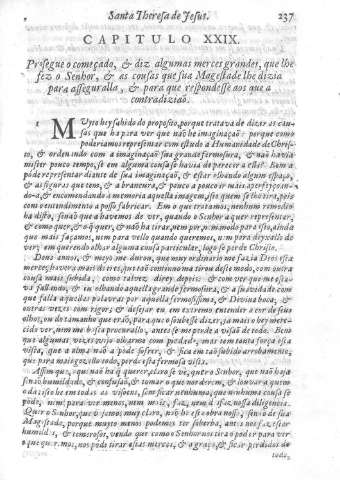 Santa Theresa de Jesus. 237
CAPITULO XXIX.
Prosegue o começado, & diz algumas merces grandes, que lhe
fez o Senhor, & as cousas que sua Magestade lhe dizia
para asseguralla, & para que respondesse aos que a
contradiziaõ.
1 MUyto hey sahido do proposito, porque tratava de dizer as cau-
sas que ha para ver que naõ he imaginaçaõ: porque como
poderiamos representar com estudo a Humanidade de Chris-
to, & ordenando com a imaginaçaõ sua grande fermosura, & naõ havia
mister pouco tempo, se em alguma cousa se havia de parecer a ella? Bem a
póde representar diante de sua imaginaçaõ, & estar olhando algum espaço,
& as figuras que tem, & a brancura, & pouco a pouco ir mais aperfeyçoan-
do-a, & encomendando à memoria aquella imagem, isto quem se lho tira, pois
com o entendimento a pode fabricar. Em o que tratamos, nenhum remedio
ha disso, senaõ que a havemos de ver, quando o Senhor a quer representar,
& como quer, & o que quer, & naõ ha tirar, nem por, nem modo para isso, ainda
que mais façamos, nem para vello quando queremos, nem para deyxallo de
ver; em querendo olhar alguma cousa particular, logo se perde Christo.
Dous annos, & meyo me durou, que muy ordinario me fazia Deos esta
merce; haverá mais de tres, que taõ continuo ma tirou deste modo, com outra
cousa mais subida, como talvez direy depois: & com ver que me esta-
va fallando, & eu olhando aquella grande fermosura, & a suavidade com
que falla aquellas palavras por aquella fermosissima, & Divina boca, &
outras vezes com rigor; & desejar eu em extremo entender a cor de seus
olhos, ou do tamanho que eraõ, para que o soubesse dizer, jamais o hey mere-
cido ver, nem me basta procurallo, antes se me perde a visaõ de todo. Bem
que algumas vezes vejo olharme com piedade, mas tem tanta força esta
vista, que a alma naõ a póde sofrer, & fica em taõ subido arrobamento,
que para mais gozallo todo, perde esta fermosa vista.
Assim que, aqui naõ ha que querer, claro se vè, quer o Senhor, que naõ haja
senaõ humildade, & confusaõ, & tomar o que nos derem, & louvar a quem o
dá: isto he em todas as visoens, sem ficar nenhuma, que nenhuma cousa se
póde, nem para ver menos, nem mais, faz, nem desfaz nossa diligencia.
Quer o Senhor, que vejamos muy claro, naõ he esta obra nossa, senaõ de sua
Magestade, porque muyto menos podemos ter soberba, antes nos faz estar
humildes, & temerosos, vendo que como o Senhor nos tira o poder para ver
o que queremos, nos póde tirar estas merces, & a graça, & ficar perdidos de
todo,